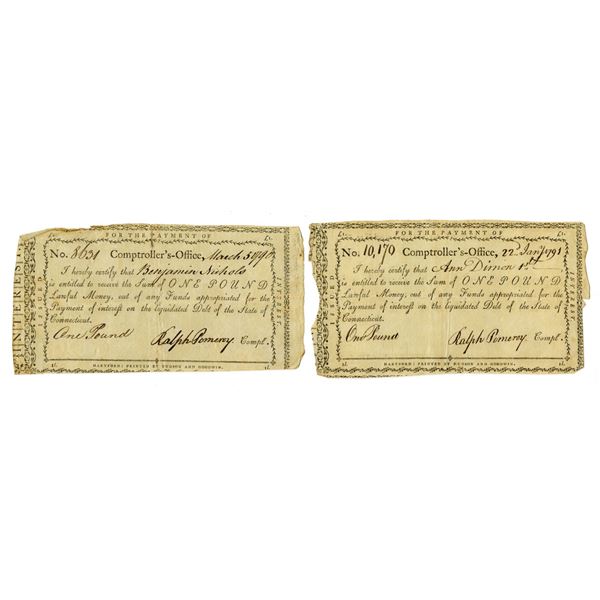 £1. FOR THE PAYMENT OF
No. 8631 Comptroller's-Office, March 5 1790
I hereby certify that Benjamin Nichols
is entitled to receive the Sum of ONE POUND
Lawful Money, out of any Funds appropriated for the
Payment of interest on the liquidated Debt of the State of
Connecticut.
One Pound Ralph Pomeroy Compt.
HARTFORD: PRINTED BY HUDSON AND GOODWIN.
1l. 1l.
ISSUED
INTEREST
£1. FOR THE PAYMENT OF £1.
No. 10,170 Comptroller's-Office, 22d Jany 1791
I hereby certify that Ann Dimon
is entitled to receive the Sum of ONE POUND
Lawful Money, out of any Funds appropriated for the
Payment of interest on the liquidated Debt of the State of
Connecticut.
One Pound Ralph Pomeroy Compt.
1l. HARTFORD: PRINTED BY HUDSON AND GOODWIN. 1l.
ISSUED
INTEREST